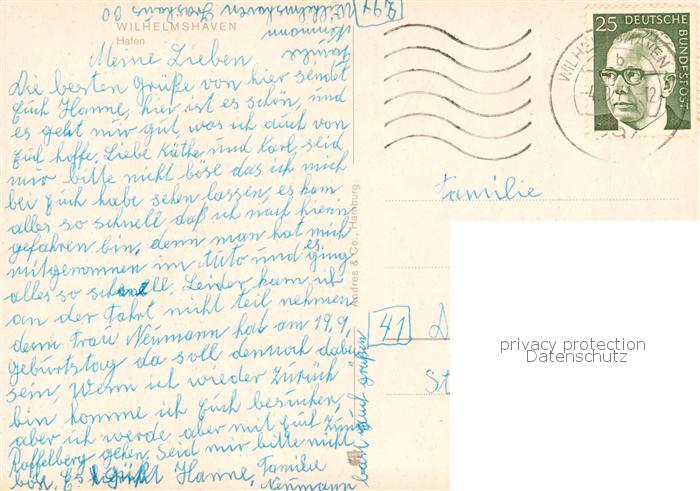 WILHELMSHAVEN
Hafen
Meine Lieben
Die besten Grüße von hier sendet
Euch Hanne, hier ist es schön, und
es geht mir gut, was ich auch von
Euch hoffe, Liebe Käthe und Karl, seid
mir bitte nicht böse das ich mich
bei Euch habe sehen lassen, es kam
alles so schnell daß ich nach hierin
gefahren bin, denn man hat mich
mitgenommen im Auto und es ging
alles so schnell, Leider kann ich
an der Fahrt nicht teil nehmen
denn Frau Neumann hat am 19.9,
Geburtstag da soll dennoch dabei
sein, Wenn ich wieder Zurück
bin komme ich Euch besuchen,
aber ich werde aber mit Euch zum
Raffelberg gehen. Seid mir bitte nicht
böse. Es grüßt Hanne, Familie
Neumann
lassen Euch grüßen
Familie
Neumann
Wilhelmshaven
Andres & Co., Hamburg
25 DEUTSCHE
BUNDESPOST
Familie
41
privacy protection
Datenschutz